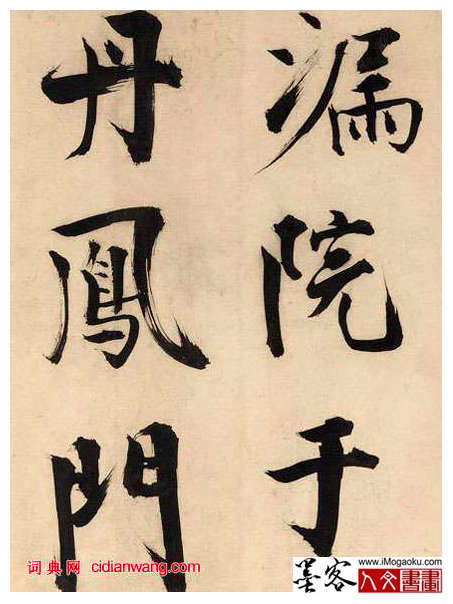 漏院于
丹鳳門
词典网 cidianwang.com
墨客
www.iMogaoku.com
人文書畫